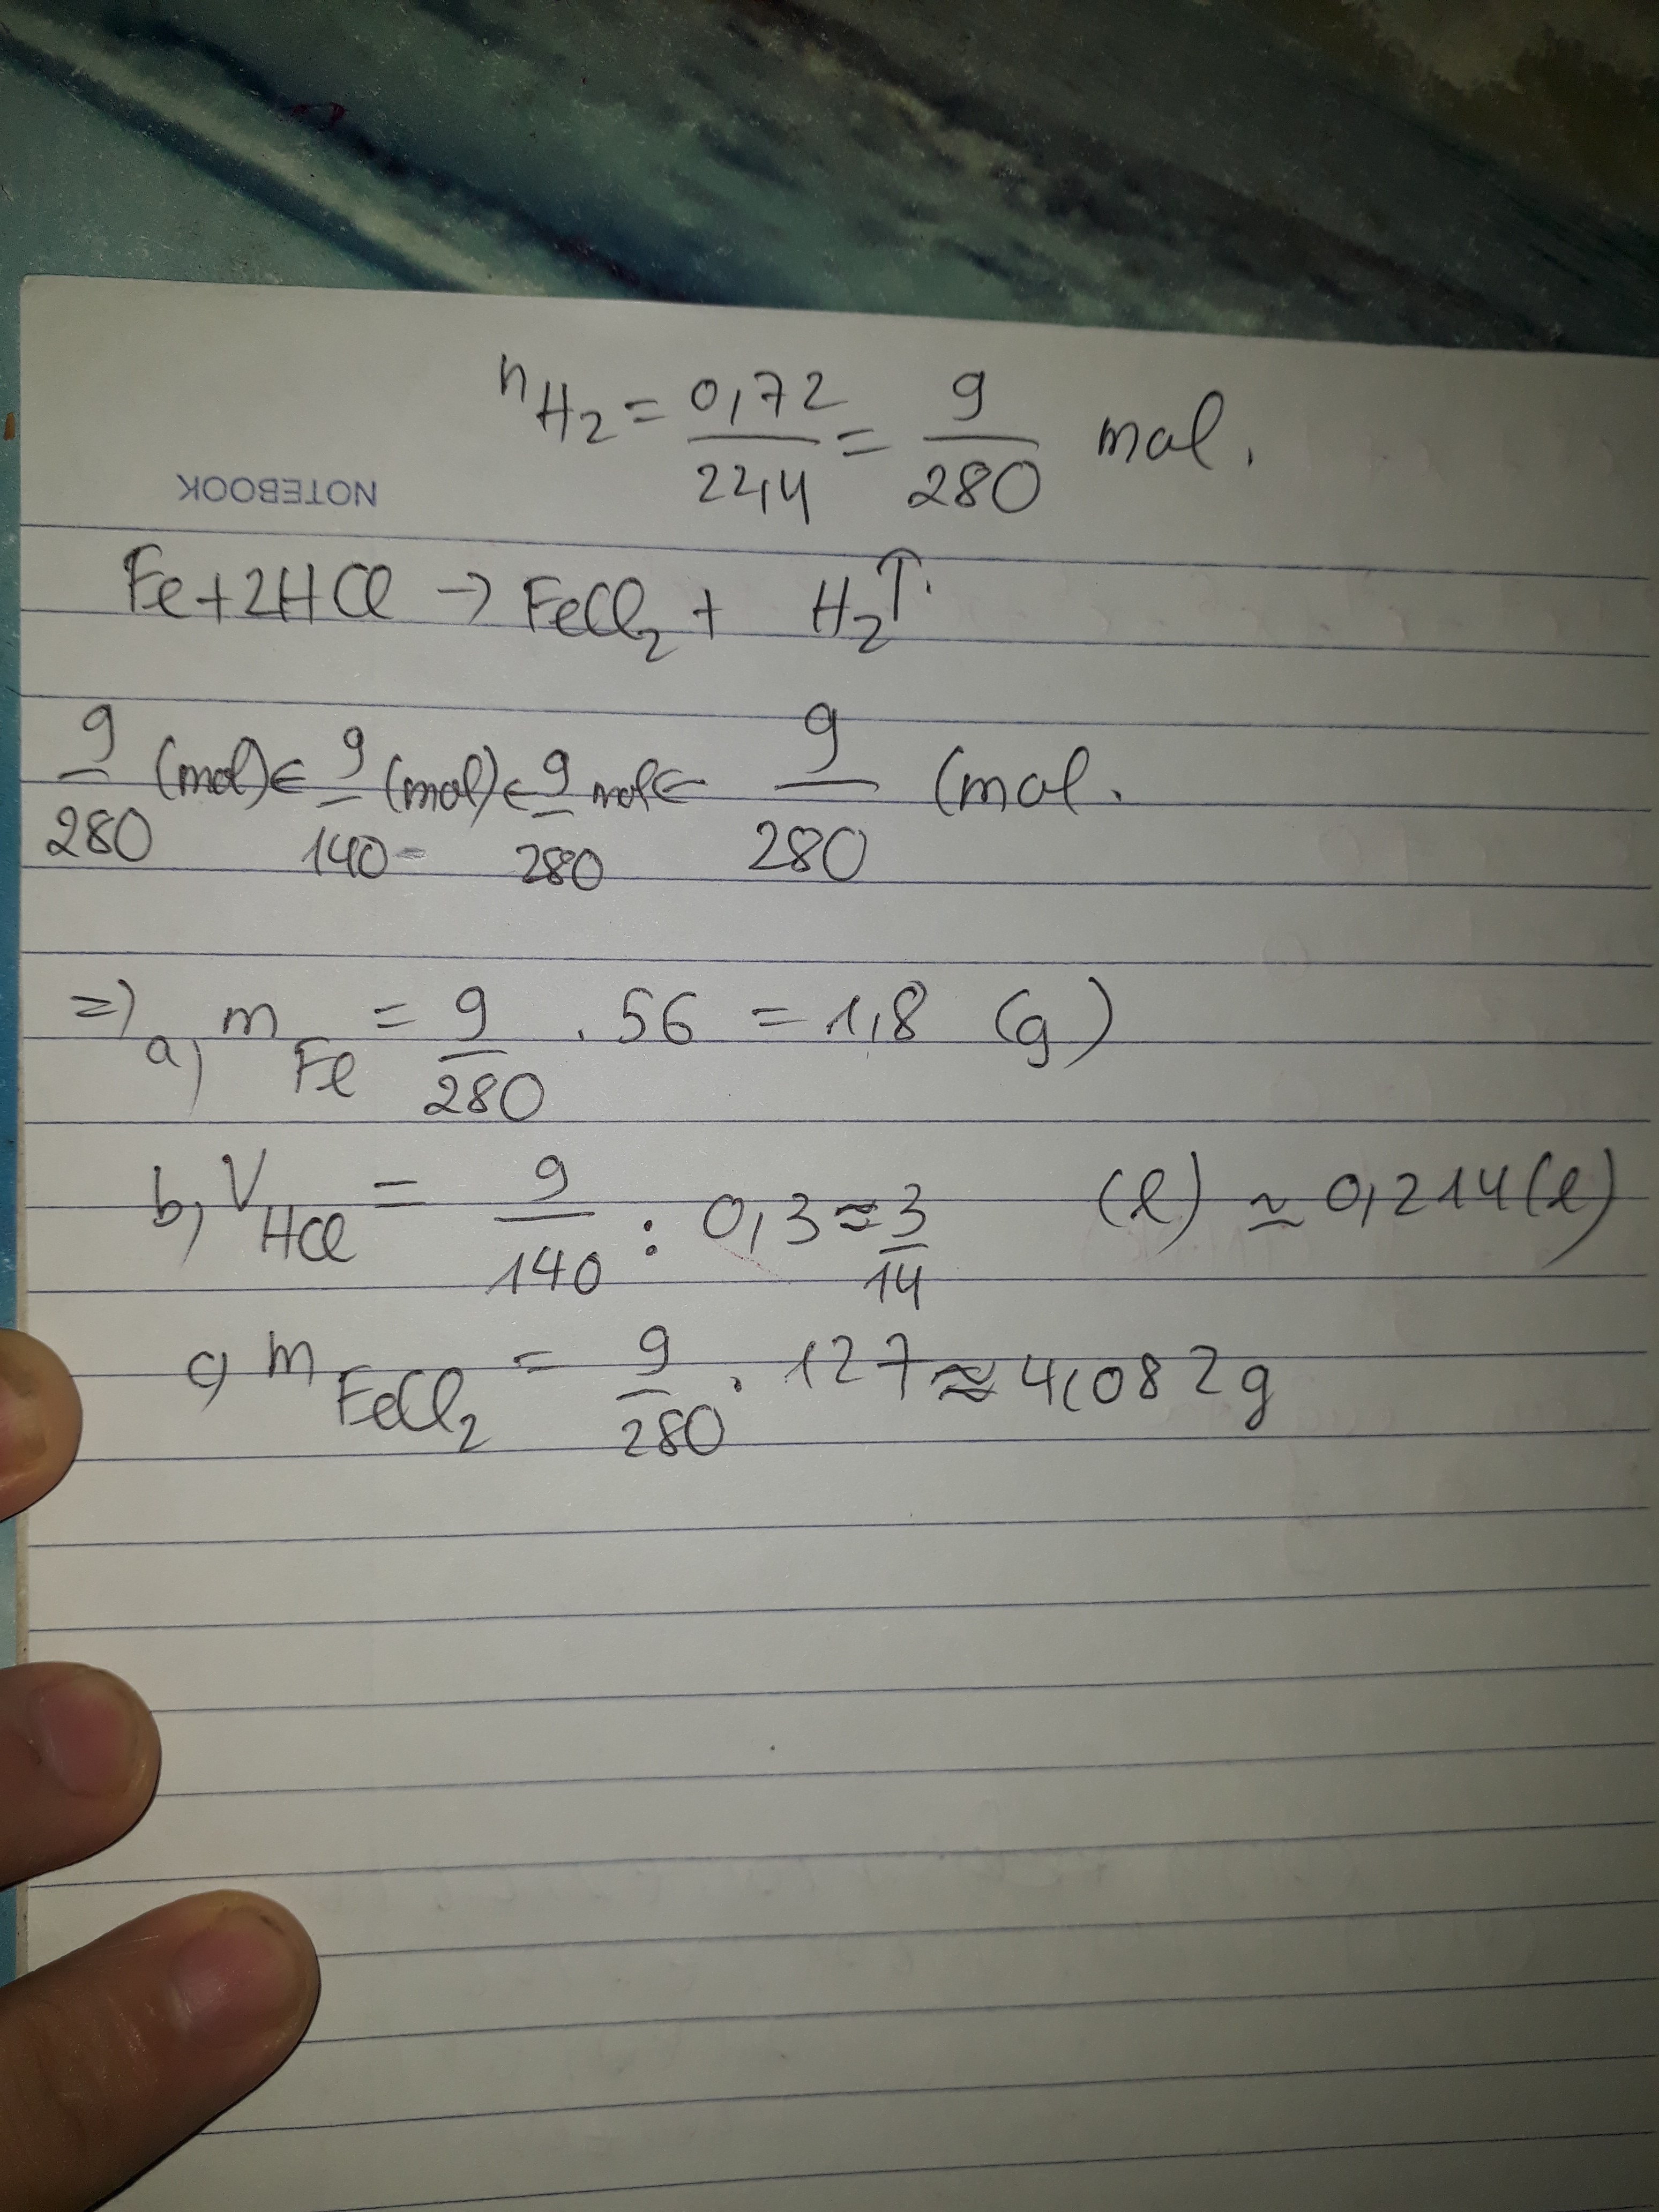 nH₂ = 0,72/22,4 = 9/280 mol.
NOTEBOOK
Fe + 2HCl → FeCl₂ + H₂↑.
9/280 (mol) ← 9/140 (mol) ← 9/280 mol ← 9/280 (mol.
=> a, m Fe = 9/280 . 56 = 1,8 (g)
b, V HCl = 9/140 : 0,3 ≈ 3/14 (l) ≃ 0,214 (l)
c, m FeCl₂ = 9/280 . 127 ≈ 4,082g